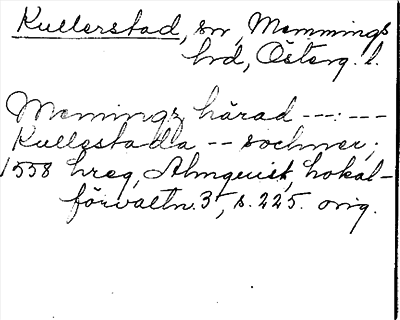 Kullerstad, sn, Memmings
hrd, Österg. l.
Memings härad --:---
Kullestada -- sochner;
1558 hreg, Almquist, Lokal-
förvaltn. 3, s. 225. orig.